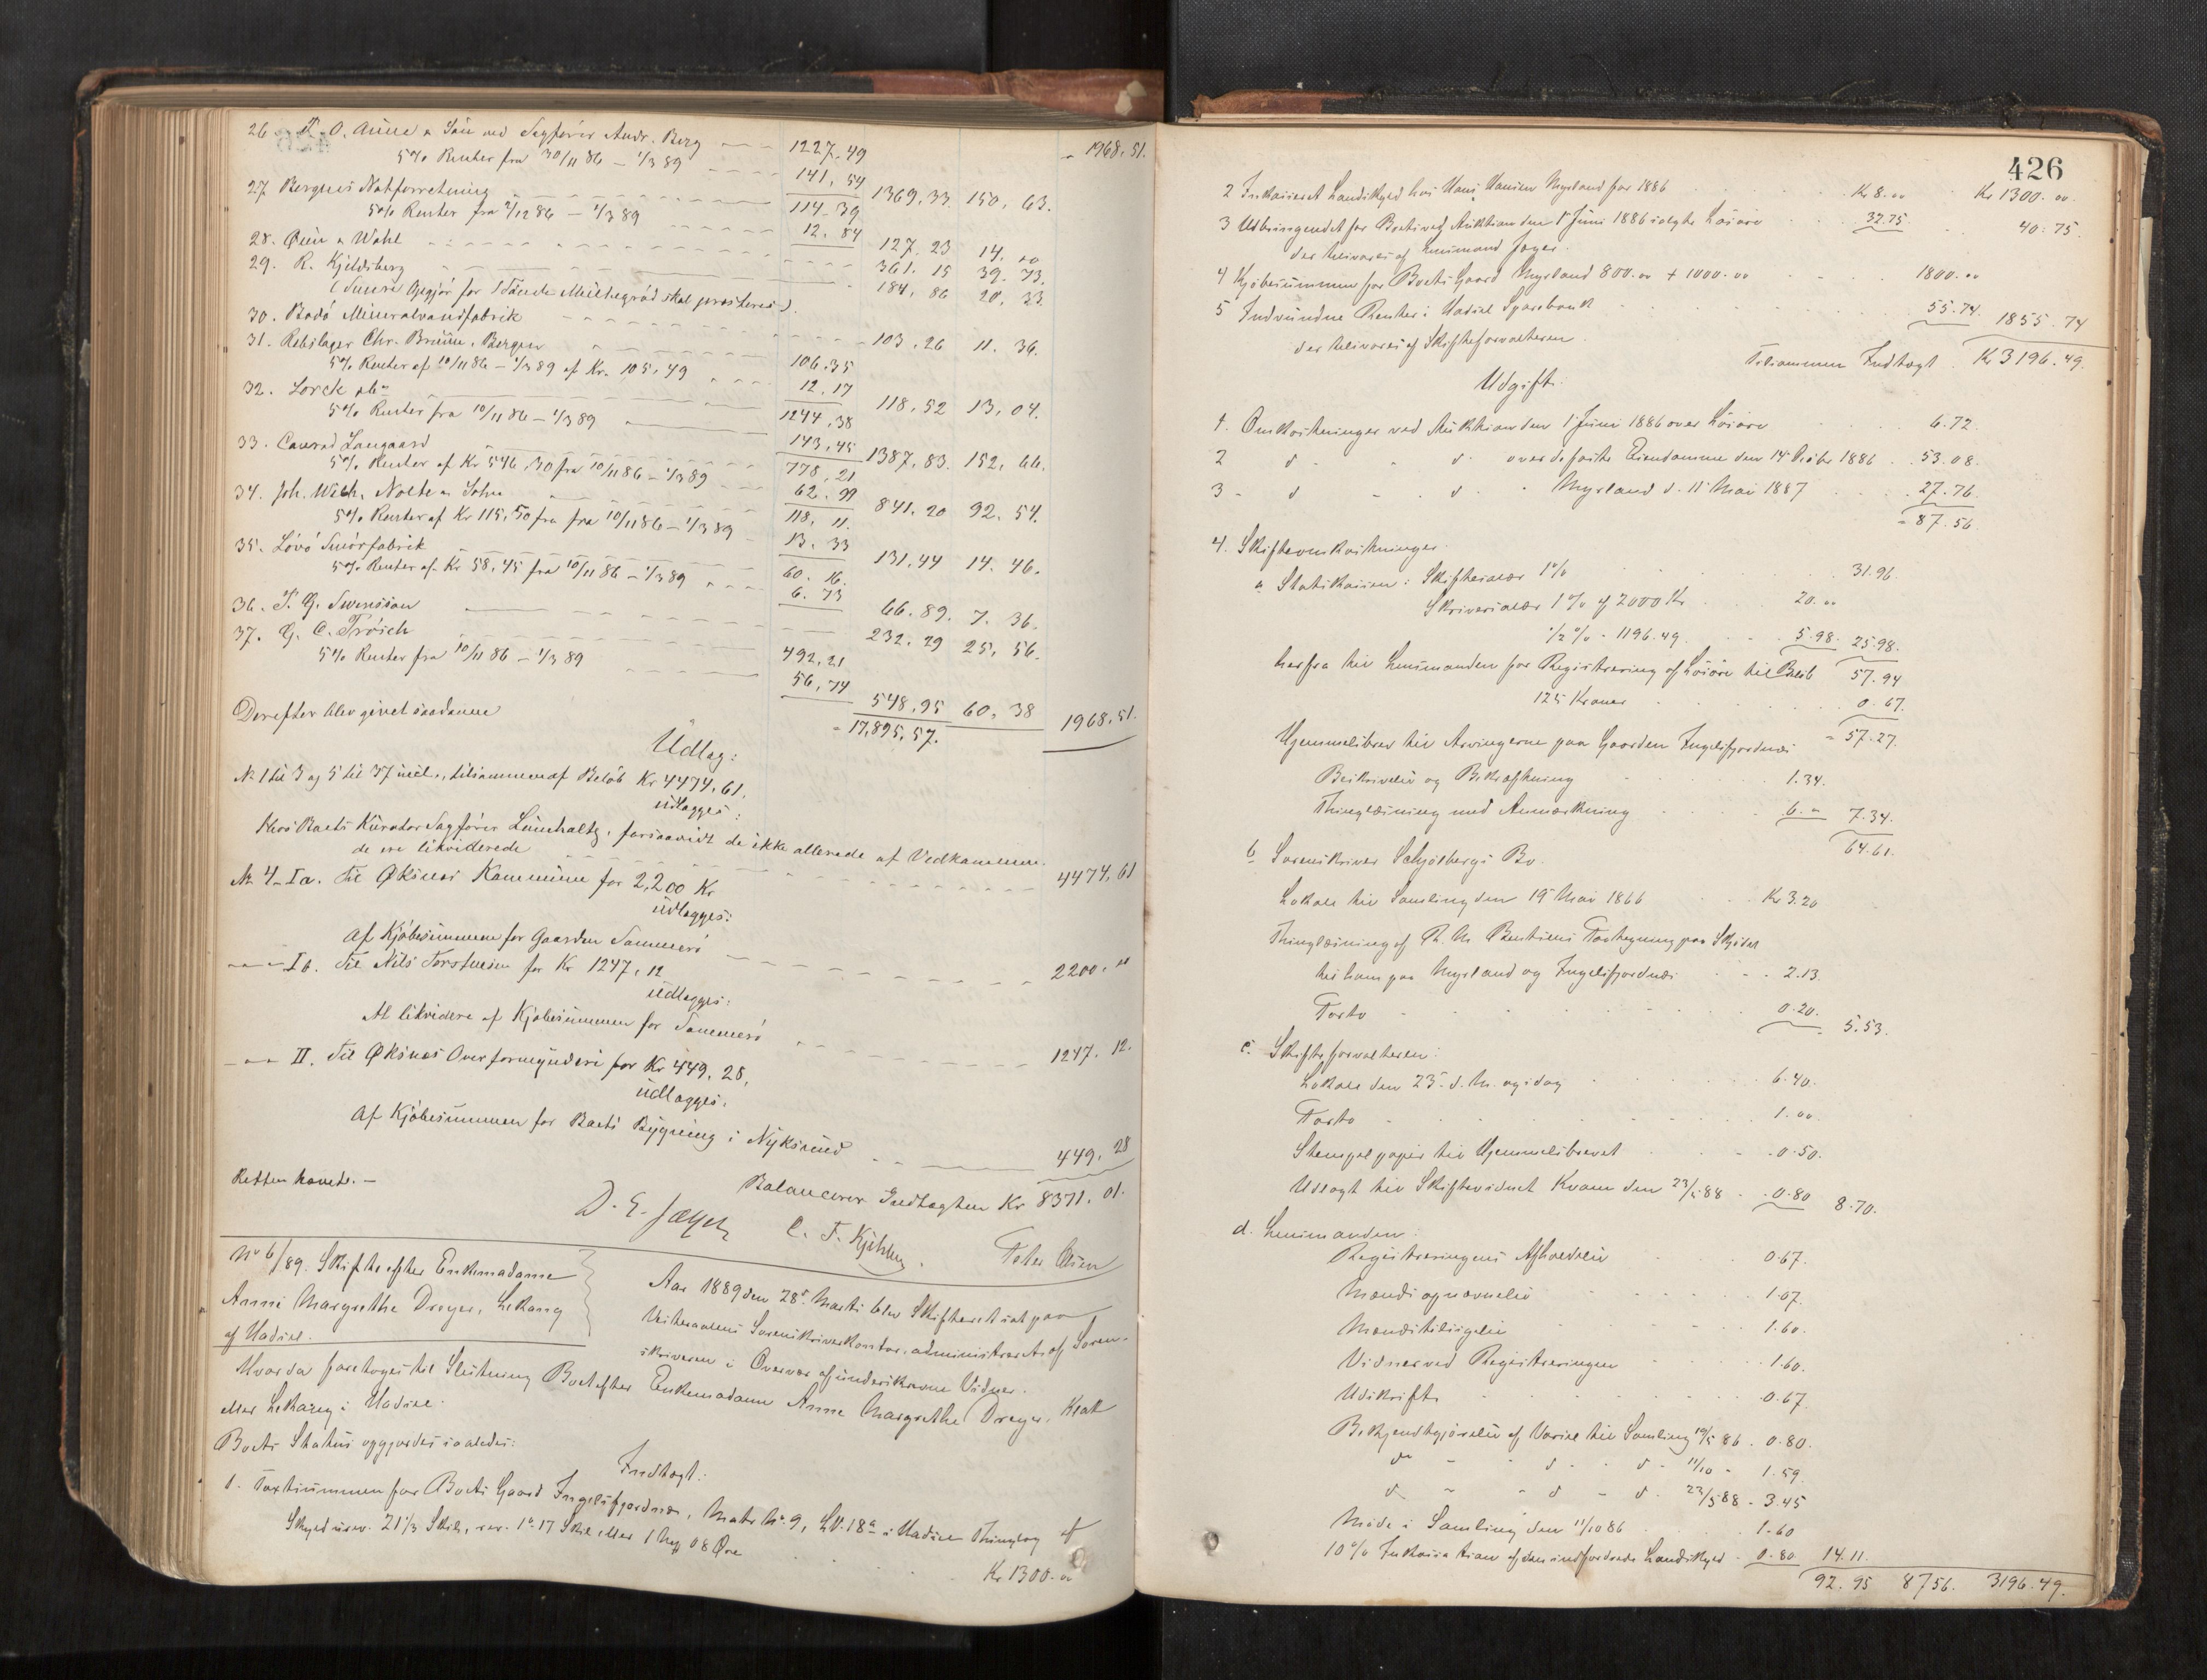 26. O. Aune & Søn ved Sagfører Andr. Berg 1227,49 " 1968,51.
5% Renter fra 30/11 86 – 1/3 89 141,54 1369,33. 150,63.
27 Bergens Notforretning 114–39
5% Renter fra 2/12 86 – 1/3 89 12.84 127.23 14.00
28. Øien & Wahl 361.15 39.73.
29. R. Kjeldsberg 184,86 20,33.
30. Bodø Mineralvandfabrik 103.26 11.36.
31. Rebslager Chr. Bruun, Bergen 106.35
5% Renter af 10/11 86 – 1/3 89 af Kr. 105,49 12.17 118,52 13,04.
32. Lorck 1244,38
5% Renter fra 10/11 86 – 1/3 89 143,45 1387,83. 152,66.
33. Conrad Langaard 778,21
5% Renter af Kr 546,30 fra 10/11 86 – 1/3 89 62.99 841.20 92.54.
34. Joh. Wilh. Nolte & Sohn 118,11.
5% Renter af Kr 115,50 fra fra 10/11 86 – 1/3 89 13.33 131,44 14.46.
35. Løvø Smørfabrik 60.16.
5% Renter af Kr 58,45 fra 10/11 86 – 1/3 89 6.73 66.89. 7.36.
36. Swensson 232.29 25,56.
37. G. C. Frøsch 492,21
5% Renter fra 10/11 86 – 1/3 89 56,74 548,95 60,38 1968,51.
17,895,57.
Derefter blev givet saadanne
Udlæg:
No 1 til 3 og 5 til 37 incl., tilsammen af Beløb Kr 4474,61.
udlægges:
Hos Boets Kurator Sagfører Lünchaltz, forsaavidt de ikke allerede af Vedkommen.
de ere likviderede 4474,61
No 4–Ia. Til Øksnes Kommune for 2,200 Kr
udlægges:
Af Kjøbesummen for Gaarden Sommerø 2200,"
– " – Ib. Til Nils Torstensen for Kr 1247,12
udlægges:
At likvidere af Kjøbesummen for Sommerø 1247.12.
– " – II. Til Øksnes Overformynderi for Kr 449,28,
udlægges:
Af Kjøbesummen for Boets Bygning i Nyksund 449,28
Balancerer Indtægten Kr 8371.01.
Retten hævet. –
D. E. Jæger C. F. Kjeldsberg Peter Øien
No 6/89. Skifte efter Enkemadame
Anne Margrethe Dreyer, Lekang
af Hadsel.
Aar 1889 den 28de Marts blev Skifteret sat paa
Vesteraalens Sorenskriverkontor, administreret af Soren-
skriveren i Overvær af underskrevne Vidner.
Hvorda foretoges til Slutning Boet efter Enkemadame Anne Margrethe Dreyer, Kleot
eller Lekang i Hadsel.
Boets Status opgjordes saaledes:
Indtægt:
1. Taxtsummen for Boets Gaard Ingelsfjordnæs, Matr. No. 9, LN. 18a i Hadsel Thinglag af
Skyld urev. 21 1/3 Skil, rev. 1 D. 17 Skil eller 1 Mrk 08 Øre Kr 1300.00
426
2 Inkasseret Landskyld hos Hans Hansen Myrland for 1886 Kr 8.00 Kr 1300.00.
3 Udbringendet for Boets ved Auktion den 1 Juni 1886 solgte Løsøre 32.75 40.75.
der tilsvares af Lensmand Jæger.
4 Kjøbesummen for Boets Gaard Myrland 800.00 + 1000.00 1800.00
5 Indvundne Renter i Hadsel Sparebank 55.74. 1855.74
der tilsvares af Skifteforvalteren.
Tilsammen Indtægt Kr 3196.49.
Udgift.
1. Omkostninger ved Auktion den 1 Juni 1886 over Løsøre 6.72.
2 d" " d" over de faste Eiendomme den 14 Octbr 1886 53.08.
3 – d – d – Myrland d. 11 Mai 1887 27.76.
87.56.
4. Skifteomkostninger.
a Statskassen: Skiftesalær 1% 31.96.
Skriversalær 1% af 2000 Kr 20.00
1/2% – 1196.49. 5.98. 25.98.
57.94
herfra til Lensmanden for Registrering af Løsøre til Beløb
125 Kroner 0.67.
57.27.
Hjemmelsbrev til Arvingerne paa Gaarden Ingelsfjordnæs
Beskrivelse og Bekræftning 1.34.
Thinglæsning med Anmærkning 6." 7.34.
64.61.
b Sorenskriver Schjølbergs Bo.
Lokale til Samling den 19 Mai 1866 Kr 3.20
Thinglæsning af Bentsens Paategning paa Skjødet
til ham paa Myrland og Ingelsfjordnæs 2.13.
Porto 0.20. 5.53.
c. Skifteforvalteren:
Lokale den 23. d. M. og idag 6.40.
Porto 1.00.
Stempelpapir til Hjemmelsbrevet 0.50.
Udlagt til Skiftevidnet Kvam den 23/5 88 0.80 8.70.
d. Lensmanden:
Registreringens Afholdelse 0.67.
Mænds opnævnelse 1.07.
Mænds tilsigelse 1.60.
Vidner ved Registreringen 1.60.
Udskrift 0.67.
Bekjendtgjørelse af Varsel til Samling 19/5 86. 0.80.
d" – d – d – 11/10 – 1.59.
d – – d – d. 23/5 88 – 3.45
Møde i Samling den 11/10 86 1.60
10% Inkassation af den indfordrede Landskyld 0.80 14.11.
92.95 8756. 3196.49.